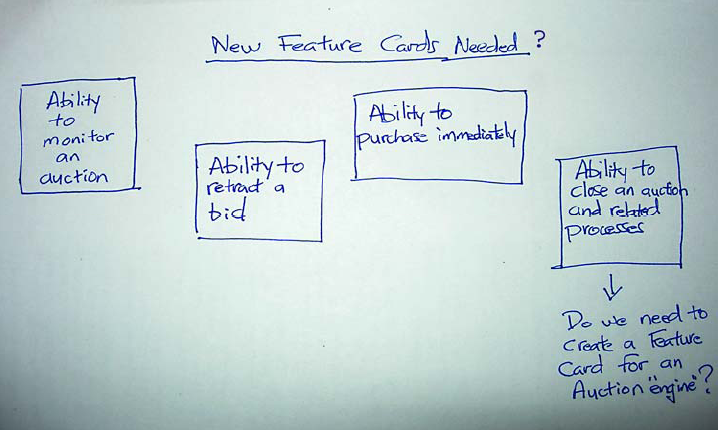 New Feature Cards Needed?
Ability
to
monitor
an
auction
Ability to
retract a
bid
Ability to
purchase immediately
Ability to
close an auction
and related
processes
Do we need to
create a Feature
Card for an
Auction "engine"?